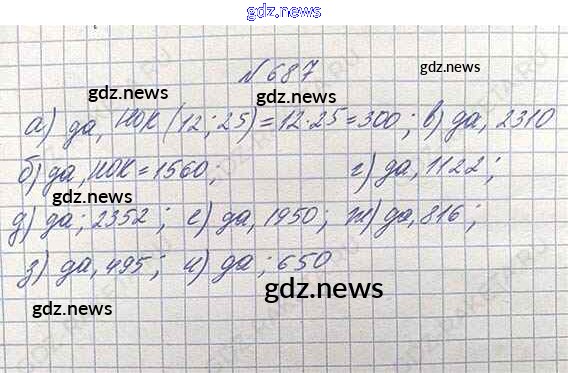 gdz.news
№ 687
gdz.news
gdz.news
gdz.news
а) да, НОК (12; 25) = 12·25 = 300; в) да, 2310
б) да, НОК = 1560; г) да, 1122;
gdz.news
gdz.news
д) да; 2352; е) да, 1950; ж) да, 816;
з) да, 495; и) да; 650
gdz.news
gdz.news